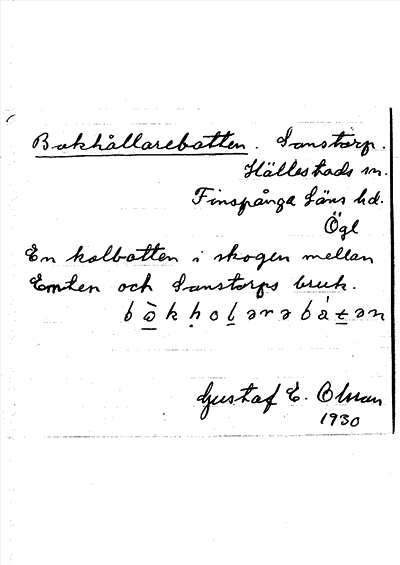 Bakhållarebotten. Sanstorp.
Hällestads sn.
Finspånga läns hd.
Ögl
En kolbotten i skogen mellan
Emten och Sanstorps bruk.
Gustaf E. Olsson
1930